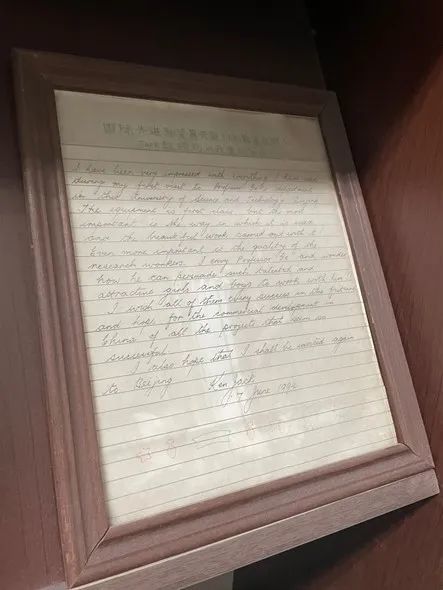 I have been very impressed with everything I have seen
during my first visit to Professor Ge's department
in this University of Science and Technology Beijing
The equipment is first class but the most
important is the way in which it is used
and the beautiful work carried out with it!
Even more important is the quality of the
research workers. I envy Professor Ge and wonder
how he can persuade such talented and
attractive girls and boys to work with him!
I wish all of them every success in the future
and hope for the commercial development in
China of all the projects that seem so
successful.
I also hope that I shall be invited again
to Beijing Ken Jack
17 June 1994